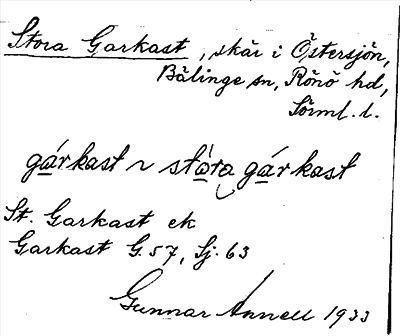 Stora Garkast, skär i Östersjön,
Bälinge sn, Rönö hd,
Sörml. l.
gárkast ~ stó̱ra gárkast
St. Garkast ek
Garkast G. 57, Sj. 63
Gunnar Annell 1933